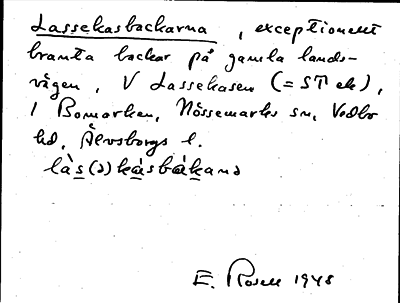 Lassekasbackarna, exceptionellt
branta backar på gamla lands-
vägen, V Lassekasen (= ST ek),
i Bomarken, Nössemarks sn, Vedbo
hd, Älvsborgs l.
làs(ə)kàsbàkana
E. Rosell 1948